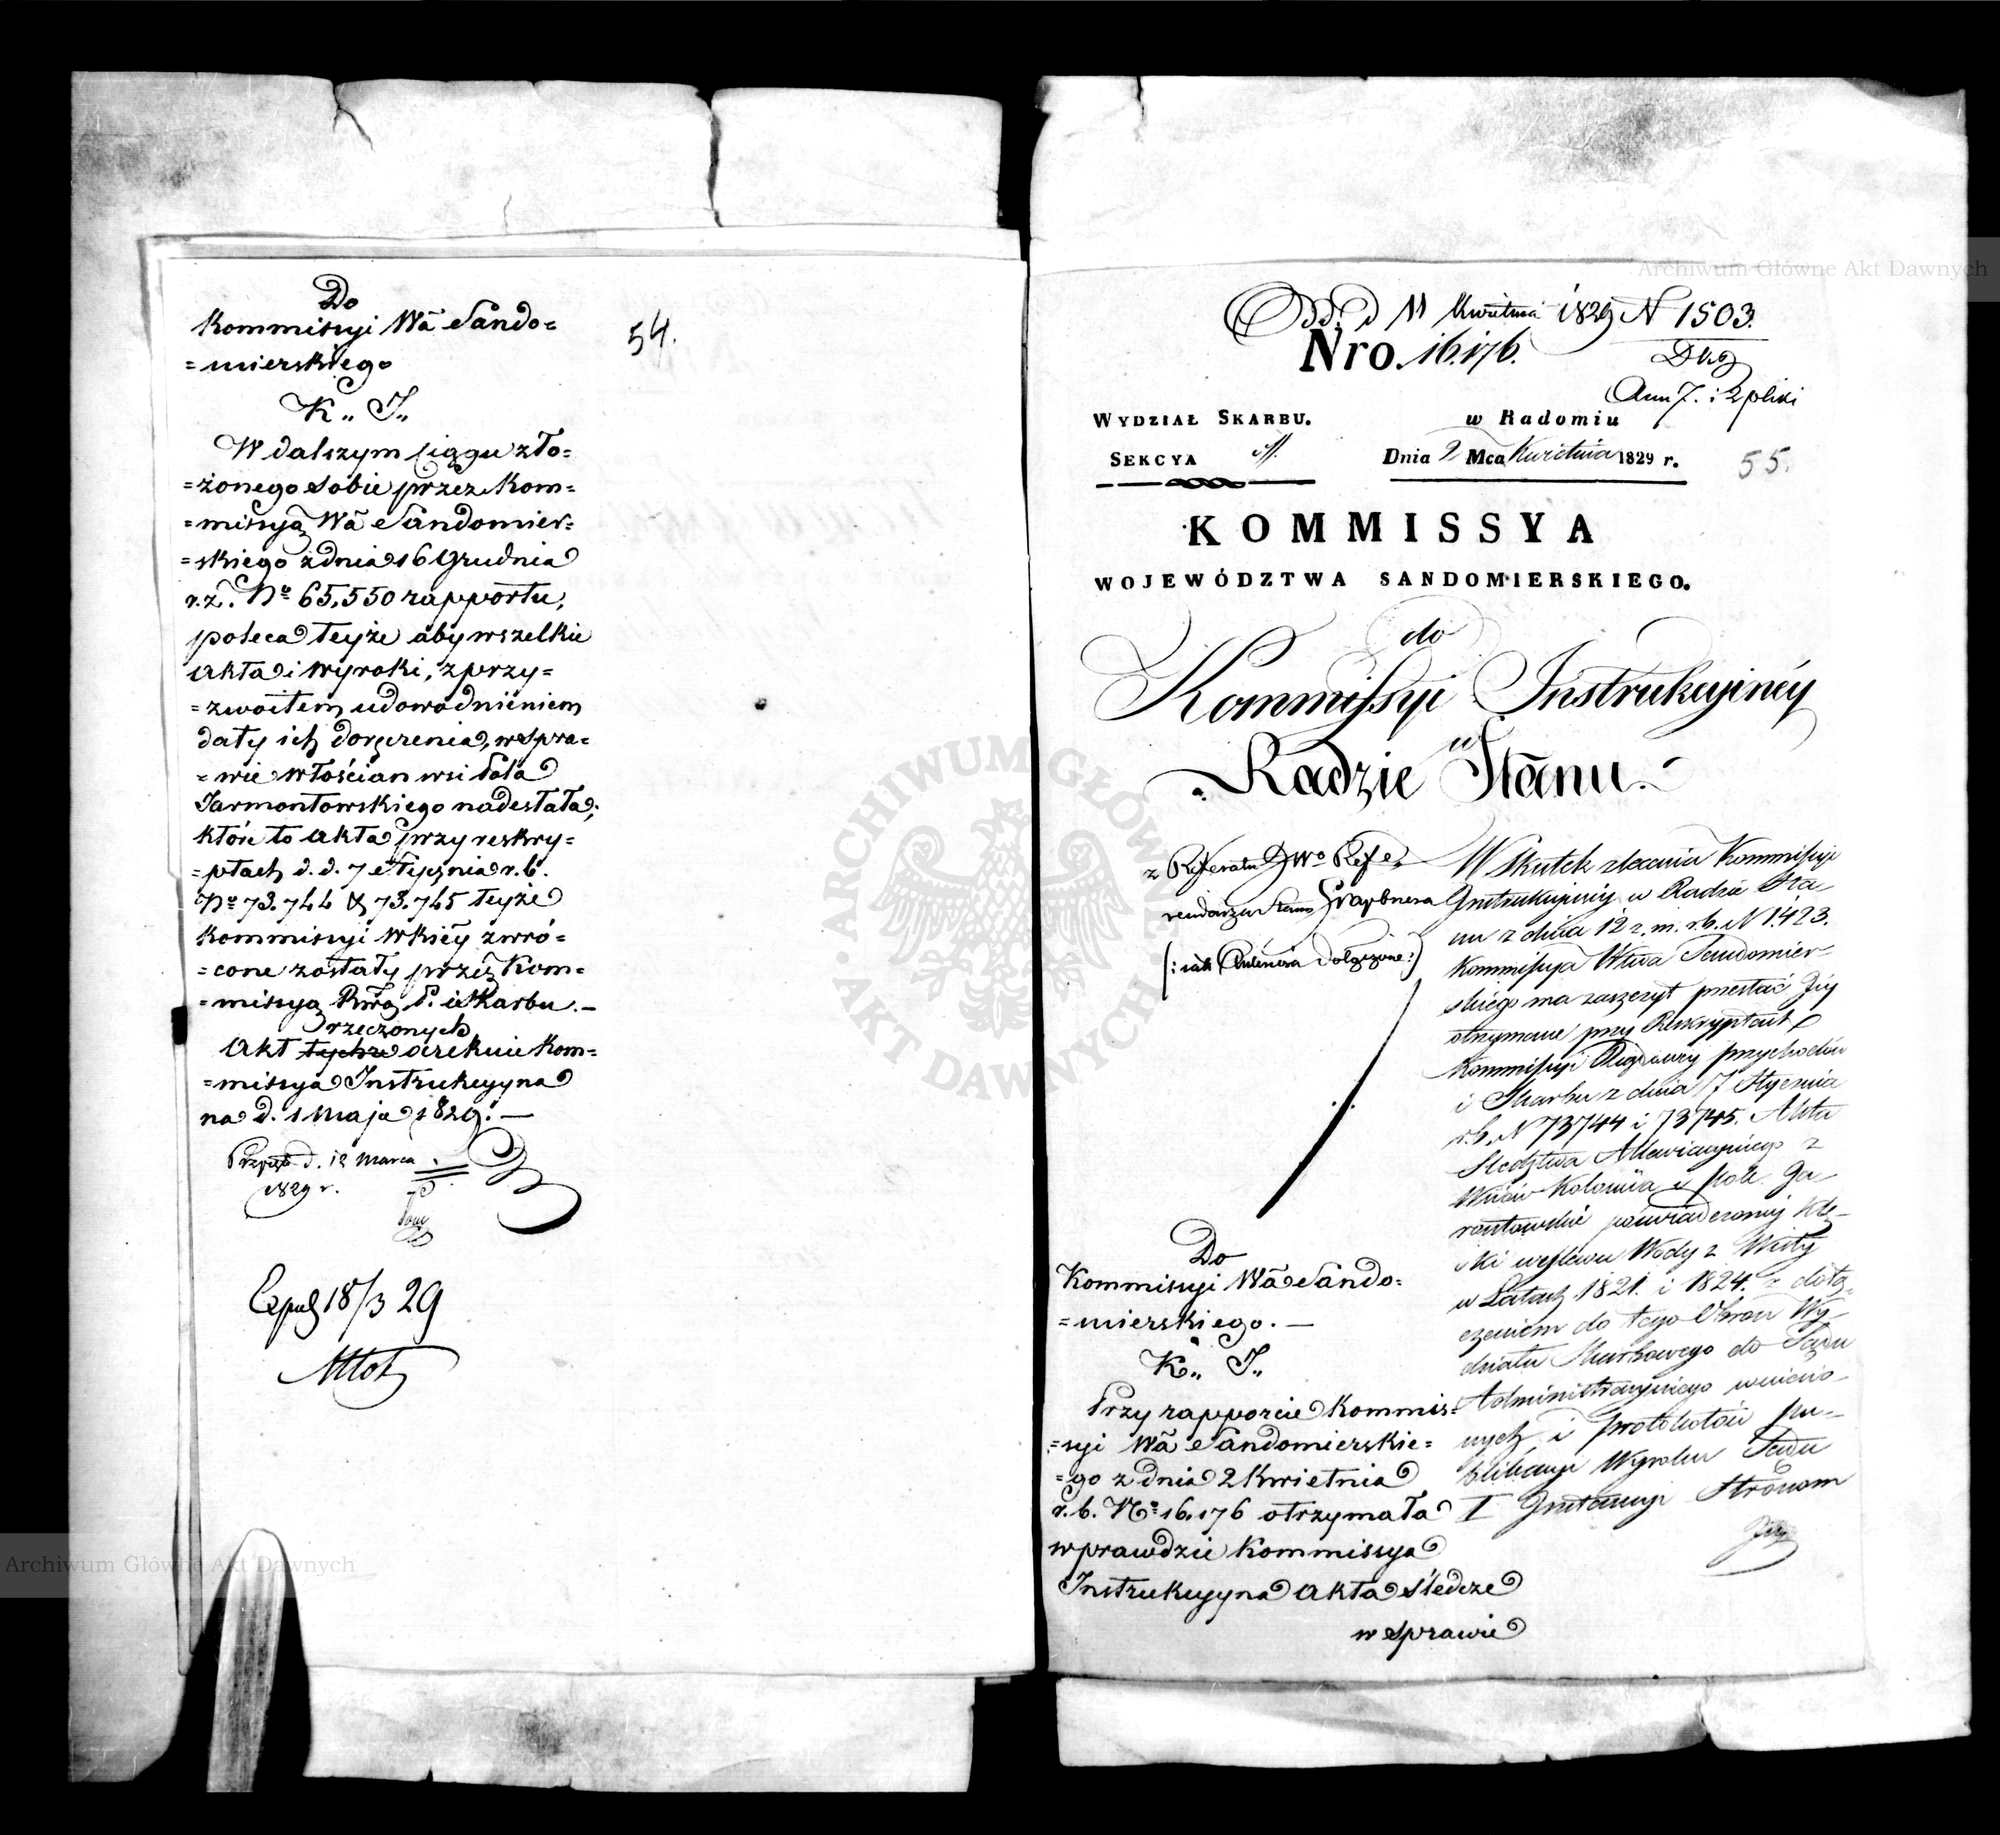 Do
Kommissyi Wa Sando=
=mierskiego
K.. J..
W dalszym ciągu zło=
=żonego sobie przez Kom=
=missyą Wa Sandomier=
=skiego z dnia 16 Grudnia
r.z. No 65,550 rapportu,
poleca teyże aby wszelkie
akta i wyroki, z przy=
=zwoitem udowodnieniem
daty ich doręczenia, w spra=
=wie włościan wsi Pola
Jarmontowskiego nadesłała;
które to akta przy reskry=
=ptach d. d. 7 Stycznia r. b.
No 73.744 & 73.745 teyże
Kommissyi Wskiey zwró=
=cone zostały przez Kom=
=missyą Rwą P. i Skarbu.—
rzeczonych
Akt tychże oczekuie Kom=
=missya Instrukcyyna
na d. 1 Maja 1829.—
d. 12 Marca
1829 r.
18/3 29
54.
d 11 Kwietnia 1829 N 1503.
Nro. 16.176.
Ann 7. i 2 pliki
WYDZIAŁ SKARBU.
w Radomiu
SEKCYA
Dnia 2 Mca Kwietnia 1829 r.
55.
KOMMISSYA
WOJEWÓDZTWA SANDOMIERSKIEGO.
do
Kommissyi Instrukcyiney
w
Radzie Stanu.
z Referatu JWo Refe=
rendarza Stanu
W skutek zlecenia Kommissyi
Instrukcyiney w Radzie Sta
nu z dnia 12 z. m. r.b. N 1423.
Kommissya Wtwa Sandomier=
skiego ma zaszczyt przesłać Jey
otrzymane przy Reskryptach
Kommissyi Rządowey przychodów
i Skarbu z dnia 7 Stycznia
r.b. N 73744 i 73745. Akta
Śledztwa
w Latach 1821. i 1824. z dołą-
czeniem do tego Obron Wy
działu Skarbowego do Sądu
Administracyinego wniesio-
nych, i protokołów pu-
blikacyi Wyroku Sądu
I Instancyi Stronom
Do
Kommissyi Wa Sando=
=mierskiego.—
K.. J..
Przy rapporcie Kommis=
=syi Wa Sandomierskie=
=go z dnia 2 Kwietnia
r. b. No 16,176 otrzymała
wprawdzie Kommissya
Instrukcyyna akta śledcze
w sprawie
Archiwum Główne Akt Dawnych
Archiwum Główne Akt Dawnych
ARCHIWUM GŁÓWNE AKT DAWNYCH